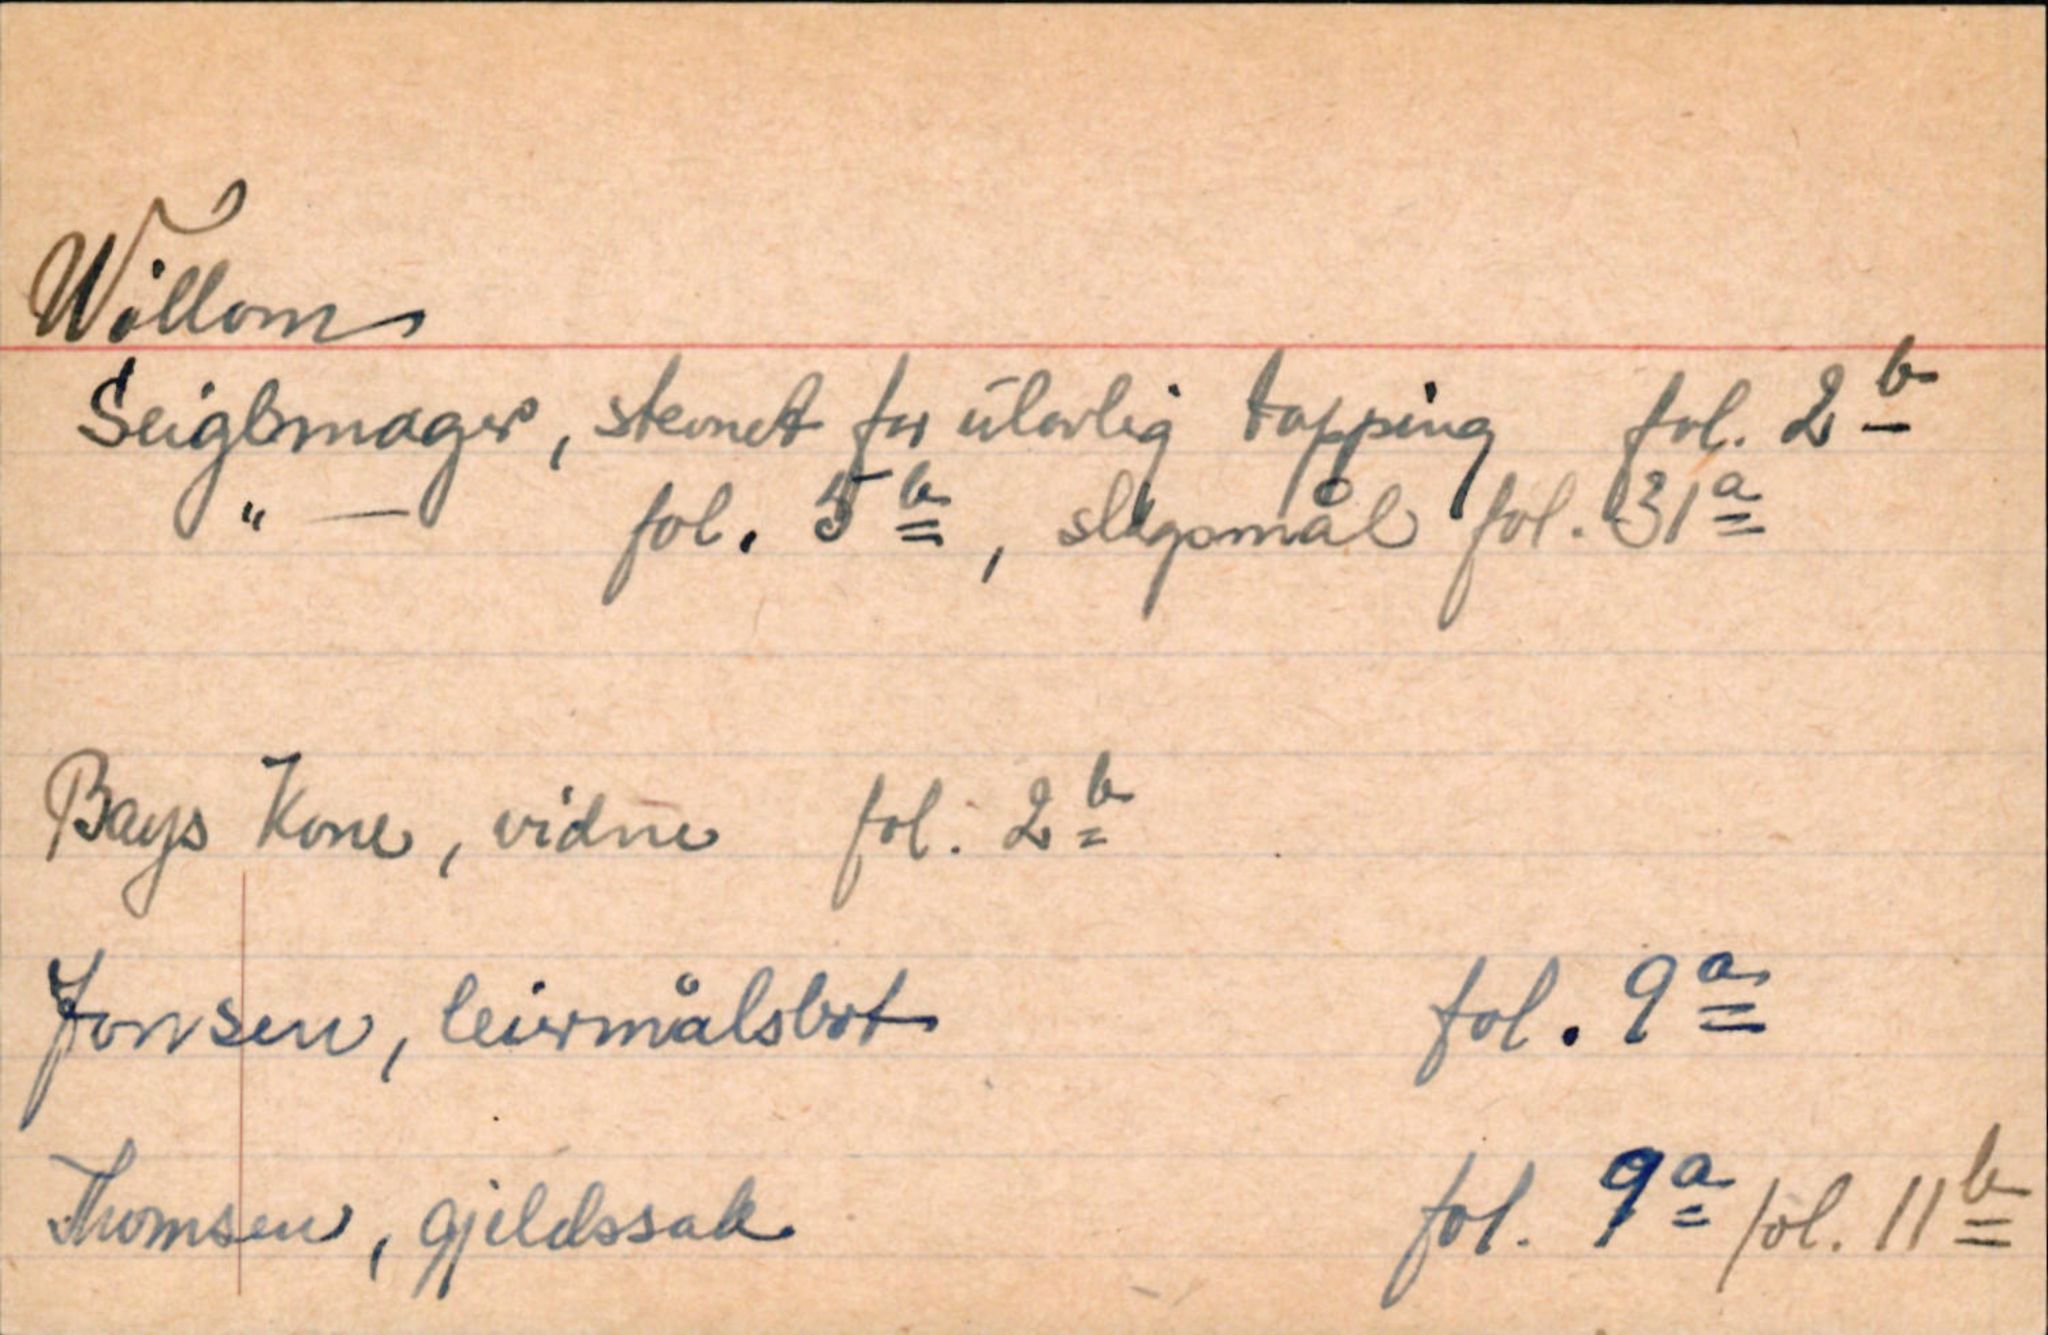 Willom
Seiglmager, stevnet for ulovlig tapping fol. 2 b
" — fol. 5 b, slagsmål fol. 31 a
Bays Kone, vidne fol. 2 b
Jonsen, leiermålsbot fol. 9 a
Thomsen, gjeldssak fol. 9 a fol. 11 b